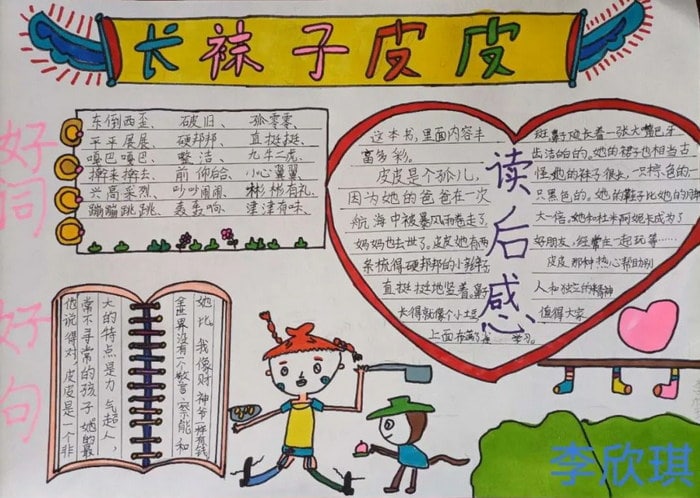 长袜子皮皮
好词
东倒西歪、 破旧、 孤零零、
平平展展、 硬邦邦、 直挺挺、
嘎巴嘎巴、 整洁、 九牛二虎、
擀来擀去、 前仰后合、 小心翼翼
兴高采烈、 吵吵闹闹、 彬彬有礼、
蹦蹦跳跳、 轰轰响、 津津有味、
读后感
这本书，里面内容丰
富多彩。
皮皮是个孤儿，
因为她的爸爸在一次
航海中被暴风雨卷走了，
妈妈也去世了。皮皮她有两
条梳得硬邦邦的小辫子
直挺挺地竖着。鼻子
长得就像个小土豆
上面布满了
斑，鼻子下长着一张大嘴巴牙
出洁白的。她的裙子也相当古
怪。她的袜子很长，一只棕色的一
只黑色的。她的鞋子比她的脚
大一倍，她和杜米阿妮卡成为了
好朋友，经常在一起玩等……
皮皮那种热心帮助别
人和独立的精神
值得大家
学习。
好句
她比，我像财神爷一样有钱
全世界没有一个警察能和
大的特点是力气超人，
常不寻常的孩子她的最
他说得对，皮皮是一个非
李欣琪